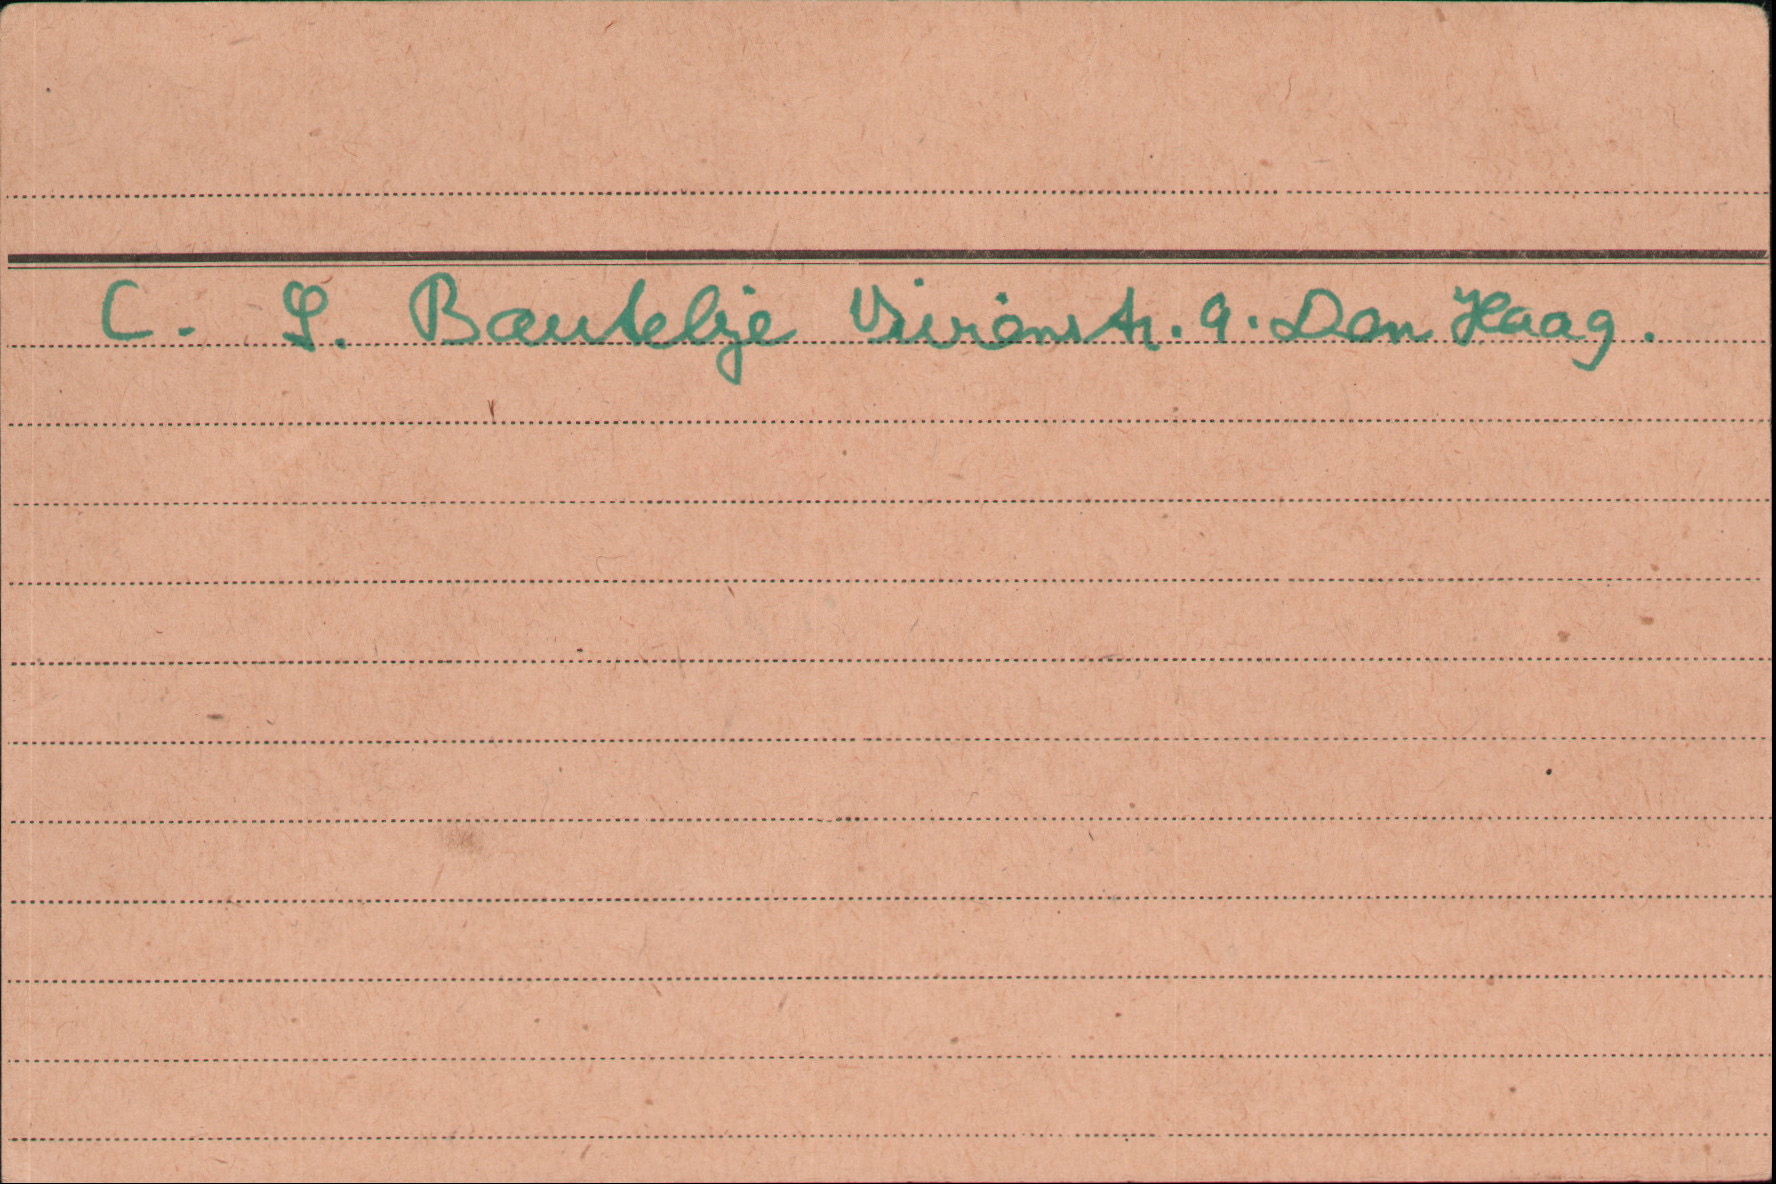 C. L. Bautelije Vivienstr. 9. Den Haag.